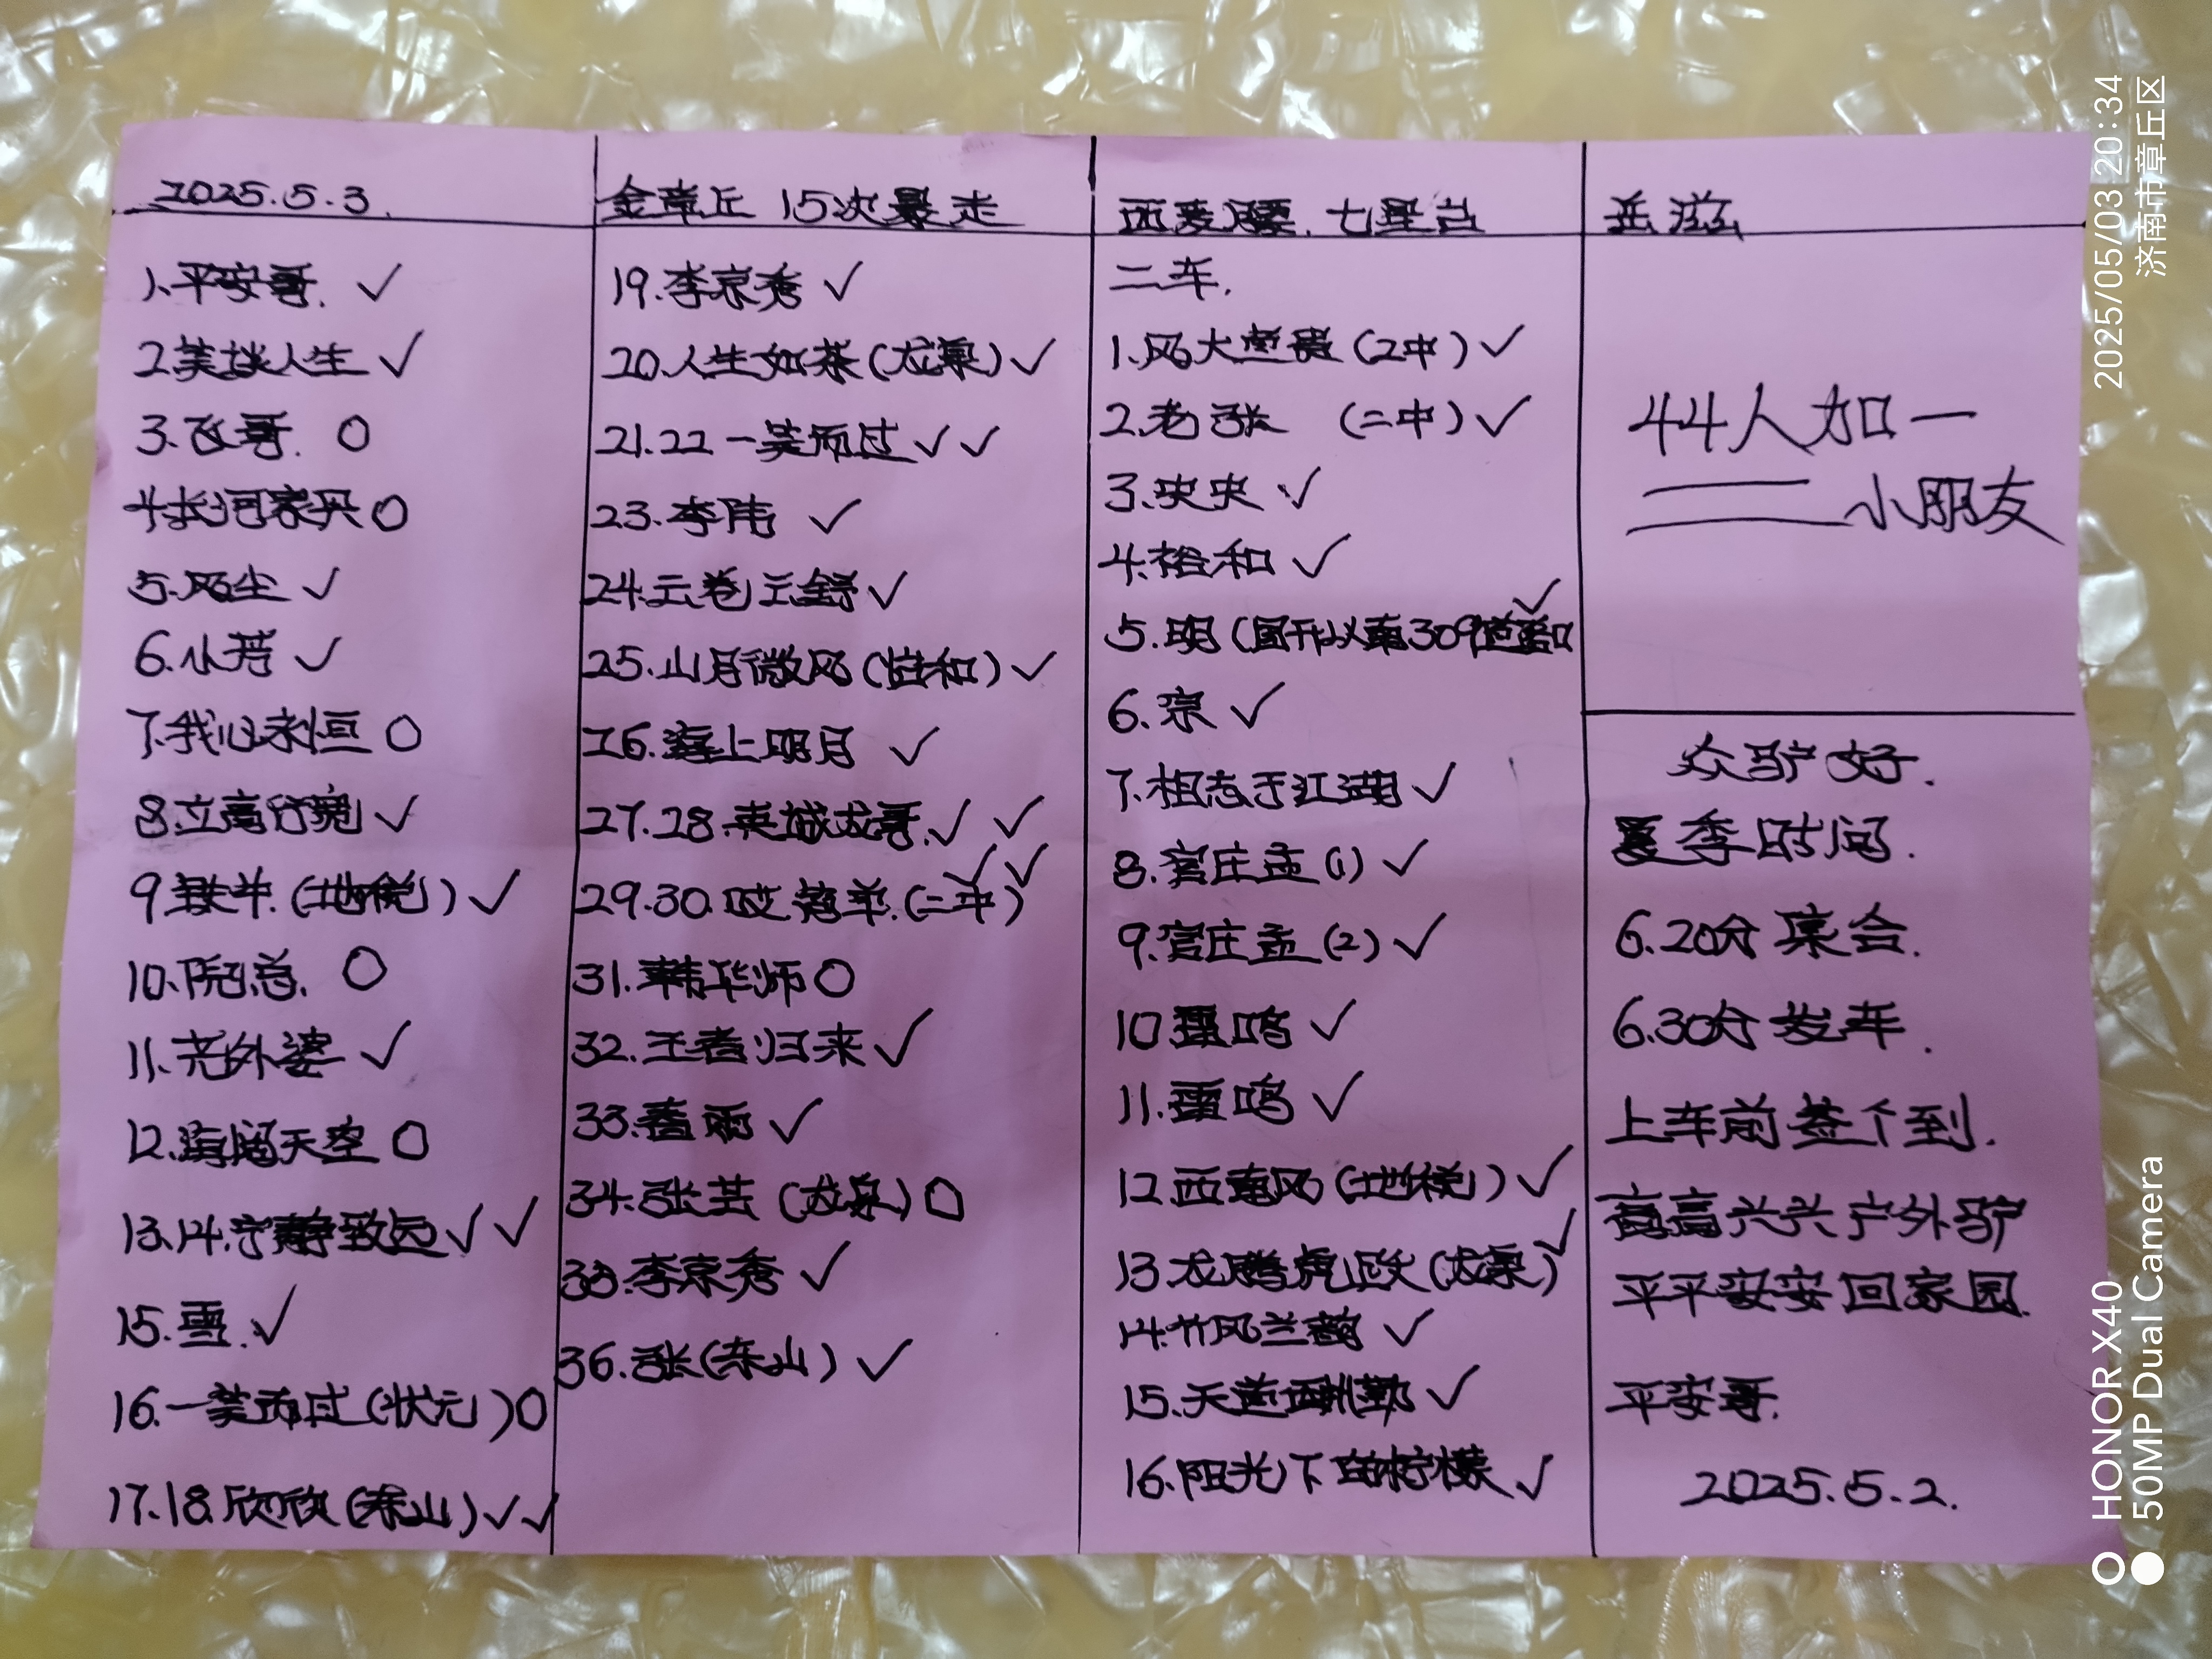 2025.5.3.
1.平安哥. ✓
2.笑谈人生 ✓
3.飞哥. O
4.长河家兵 O
5.风尘 ✓
6.小芳 ✓
7.我心永恒 O
8.立高行宽 ✓
9铁牛.(地税) ✓
10.院总. O
11.老外婆 ✓
12.海阔天空 O
13.14.宁静致远 ✓ ✓
15.雪. ✓
16.一笑而过(状元) O
17.18.欣欣(东山) ✓ ✓
金章丘 15次暴走
19.李京秀 ✓
20.人生如茶(龙泉) ✓
21.22一笑而过 ✓ ✓
23.李伟 ✓
24.云卷云舒 ✓
25.山月微风(恒和) ✓
26.海上明月 ✓
27.28.英城龙哥. ✓ ✓
29.30.哎 羊.(二中) ✓ ✓
31.韩华师 O
32.王者归来 ✓
33.春雨 ✓
34.张芸(龙泉) O
35.李京秀 ✓
36.张(东山) ✓
西麦腰.七星台
二车.
1.风大 (2中) ✓
2.老张 (二中) ✓
3.史史 ✓
4.裕和 ✓
5.明(国开以南309道路口 ✓
6.宗 ✓
7.相忘于江湖 ✓
8.官庄孟(1) ✓
9.官庄孟(2) ✓
10雷鸣 ✓
11.雷鸣 ✓
12西南风(地税) ✓
13龙腾虎跃(龙泉) ✓
14.竹风兰韵 ✓
15.天道酬勤 ✓
16.阳光下的柠檬 ✓
岳滋
44人加一
小朋友
众驴好.
夏季时间.
6.20分集合.
6.30分发车.
上车前签个到.
高高兴兴户外驴
平平安安回家园.
平安哥.
2025.5.2.
2025/05/03 20:34
济南市章丘区
HONOR X40
50MP Dual Camera